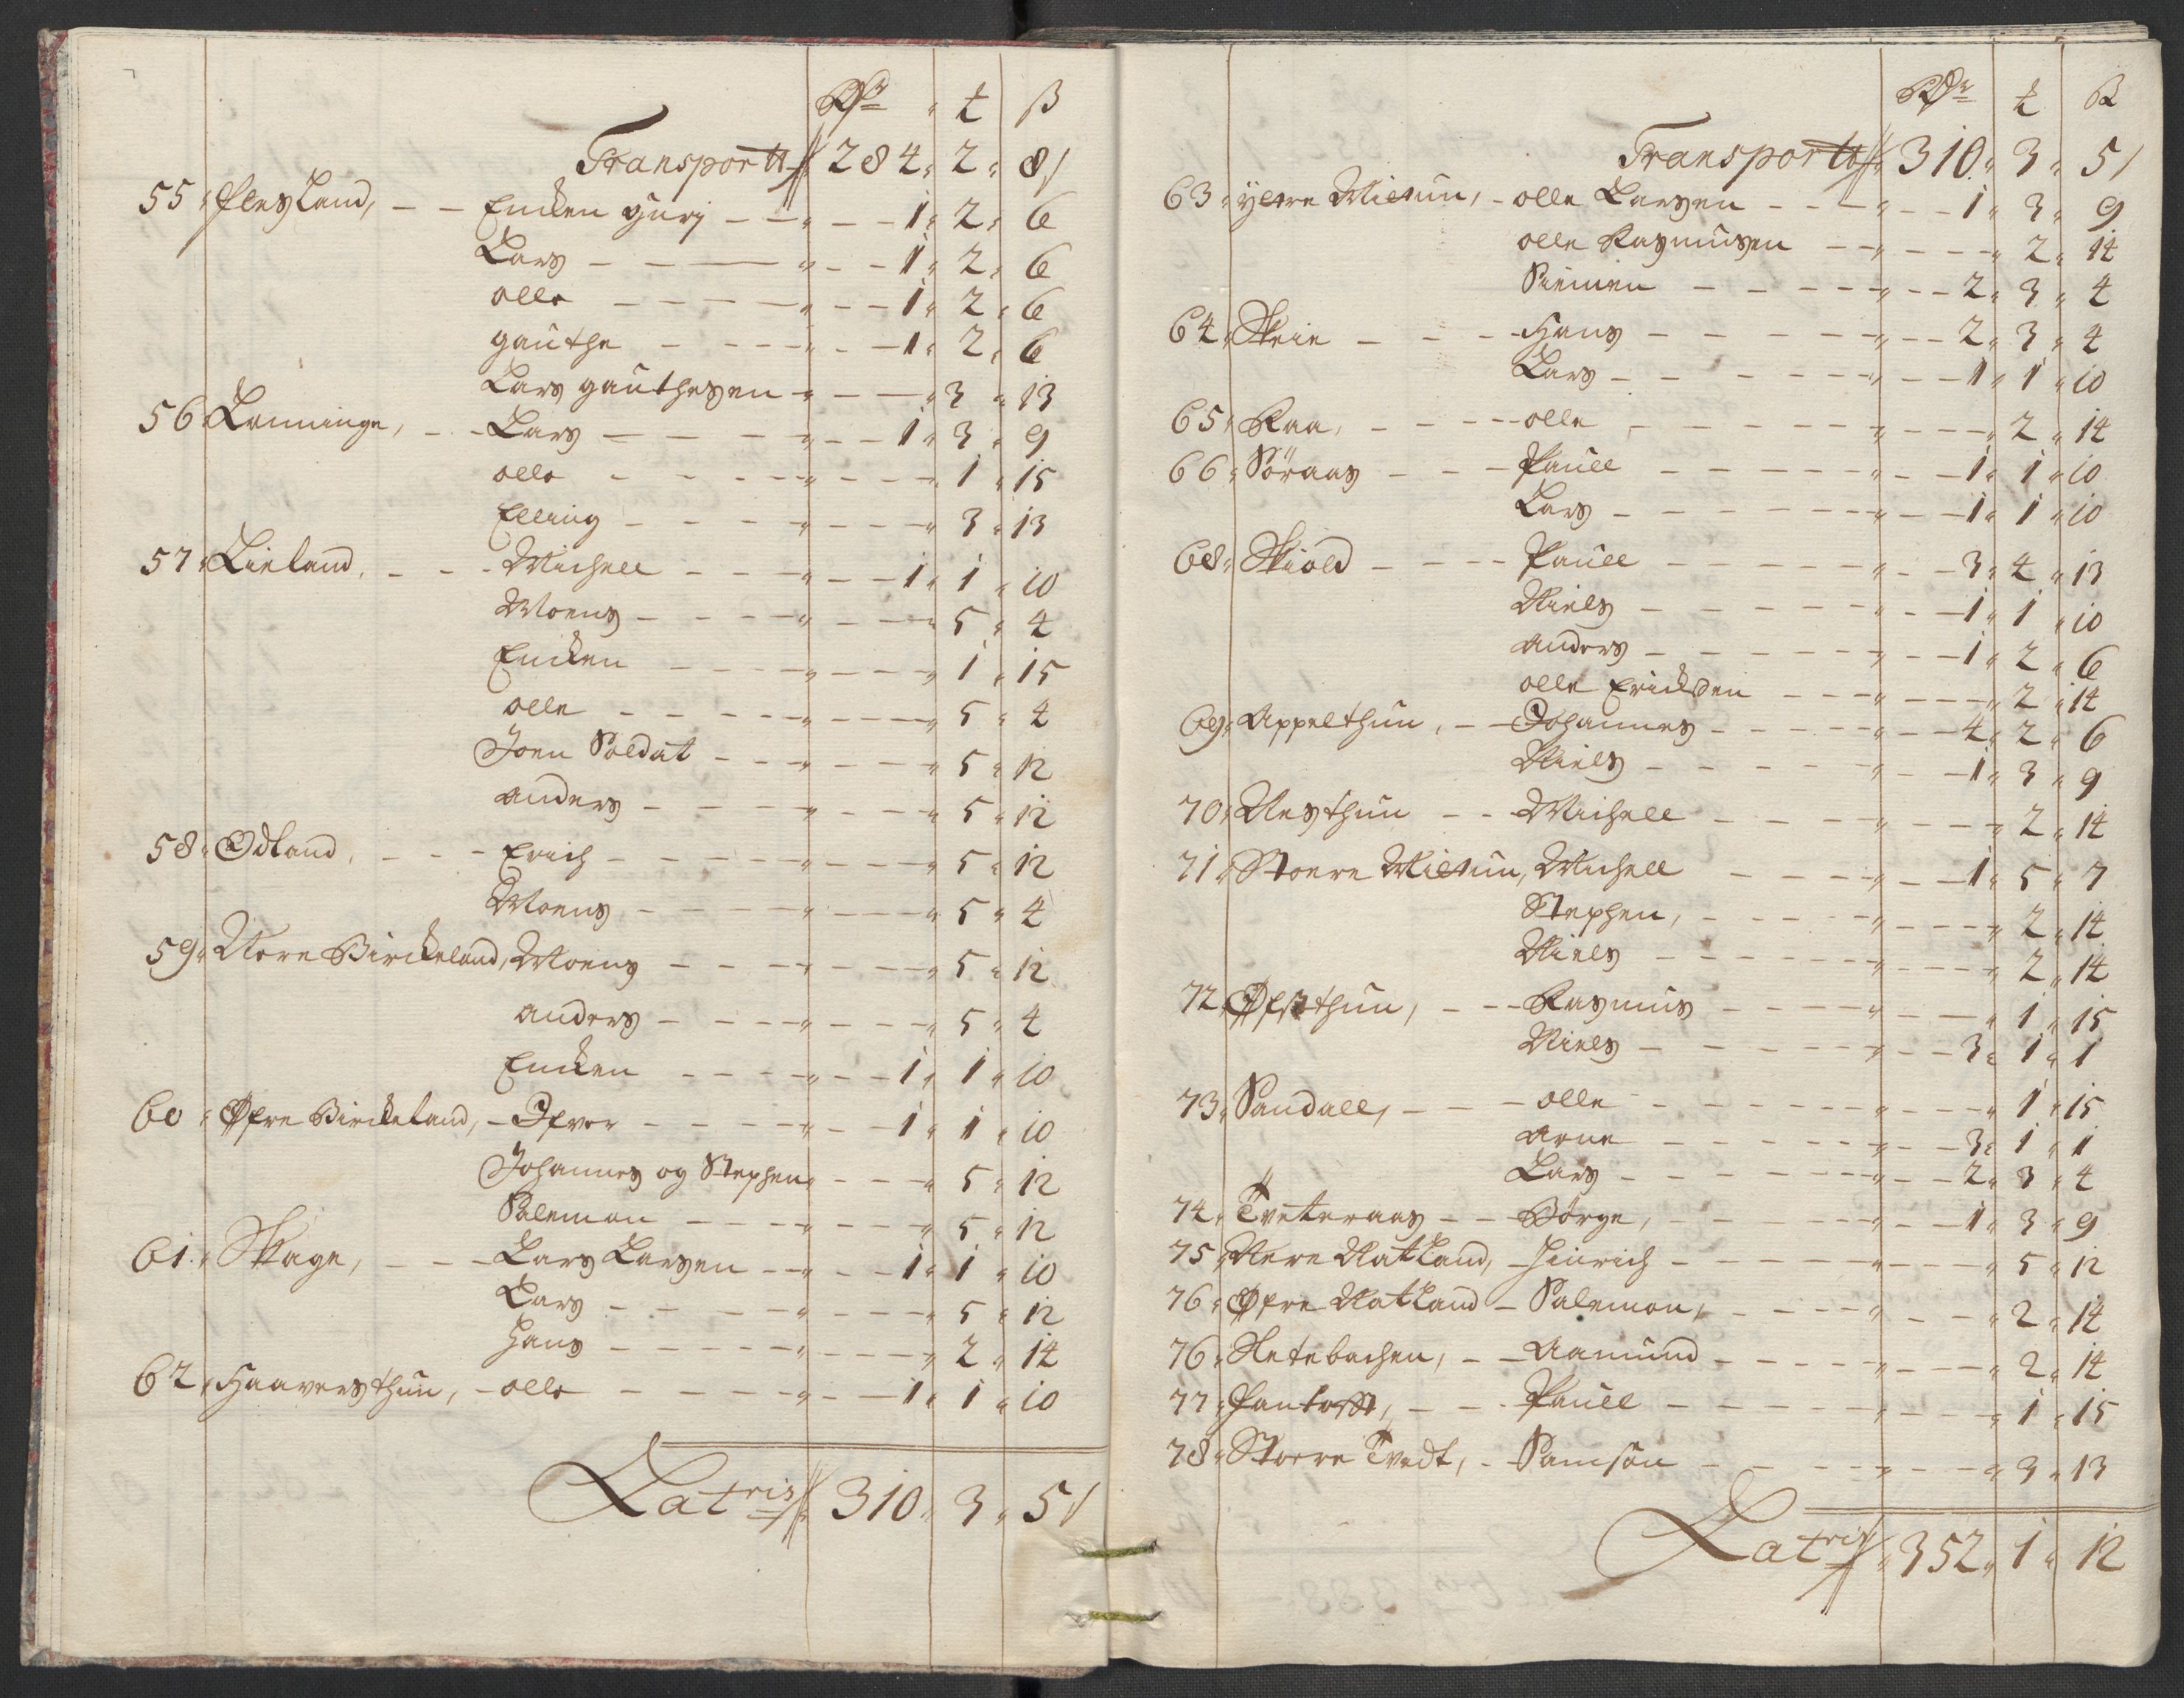 Rdr ʒ ß
Transportt 284 2 8
55 Flesland, Encken Guri 1 2 6
Lars 1 2 6
olle 1 2 6
gauthe 1 2 6
Lars gauthesen 3 13
56 Lonninge, Lars 1 3 9
olle 1 15
Elling 3 13
57 Lieland, Michell 1 1 10
Moens 5 4
Encken 1 15
olle 5 4
Joen Soldat 5 12
anders 5 12
58 Ødland, Erich 5 12
Moens 5 4
59 Nere Birckeland, Moens 5 12
anders 5 4
Encken 1 1 10
60 Øfre Birckeland, Ifver 1 1 10
Johannes og Stephen 5 12
Salemon 5 12
61 Skage, Lars Larsen 1 1 10
Lars 5 12
Hans 2 14
62 Haaversthun, olle 1 1 10
Latris 310 3 5
Rdr ʒ ß
Transportt 310 3 5
63 ytre Mildun, olle Larsen 1 3 9
olle Rasmusen 2 14
Siemen 2 3 4
64 Skeie Hans 2 3 4
Lars 1 1 10
65 Raa, olle 2 14
66 Söraas Pauell 1 1 10
Lars 1 1 10
68 Skiold Pauell 3 4 13
Niels 1 1 10
anders 1 2 6
olle Ericksen 2 14
69 Appelthun, Johannes 4 2 6
Niels 1 3 9
70 Nesthun Michell 2 14
71 Stoere Mildun, Michell 1 5 7
Stephen, 2 14
Niels 2 14
72 Øfsthun, Rasmus 1 15
Niels 3 1 1
73 Sandall, olle 1 15
Arne 3 1 1
Lars 2 3 4
74 Tveteraas Börge, 1 3 9
75 Nere Natland, Hinrich 5 12
76 Øfre Natland Salemon, 2 14
76 Sletebachen, Aamund 2 14
77 Fantofft, Pauell 1 15
78 Stoere Tvedt, Samson 3 13
Latris 352 1 12